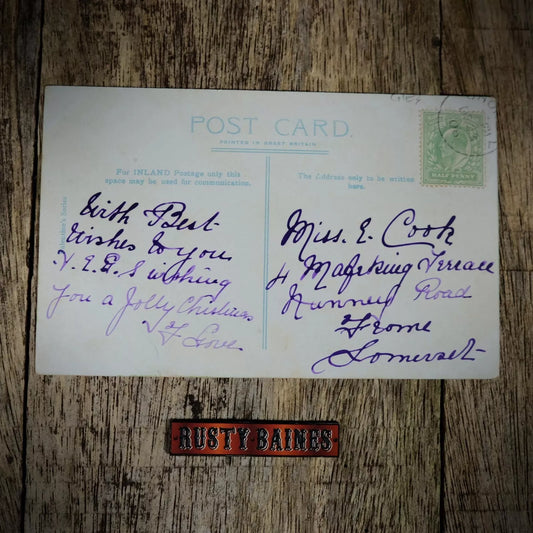 POST CARD.
PRINTED IN GREAT BRITAIN
For INLAND Postage only this
space may be used for communication.
The Address only to be written
here.
With Best
Wishes to you
wishing
you a Jolly Christmas
Love
Miss. E. Cook
4 Mafeking Terrace
Nunney Road
Frome
Somerset
HALF PENNY
RUSTY BAINES